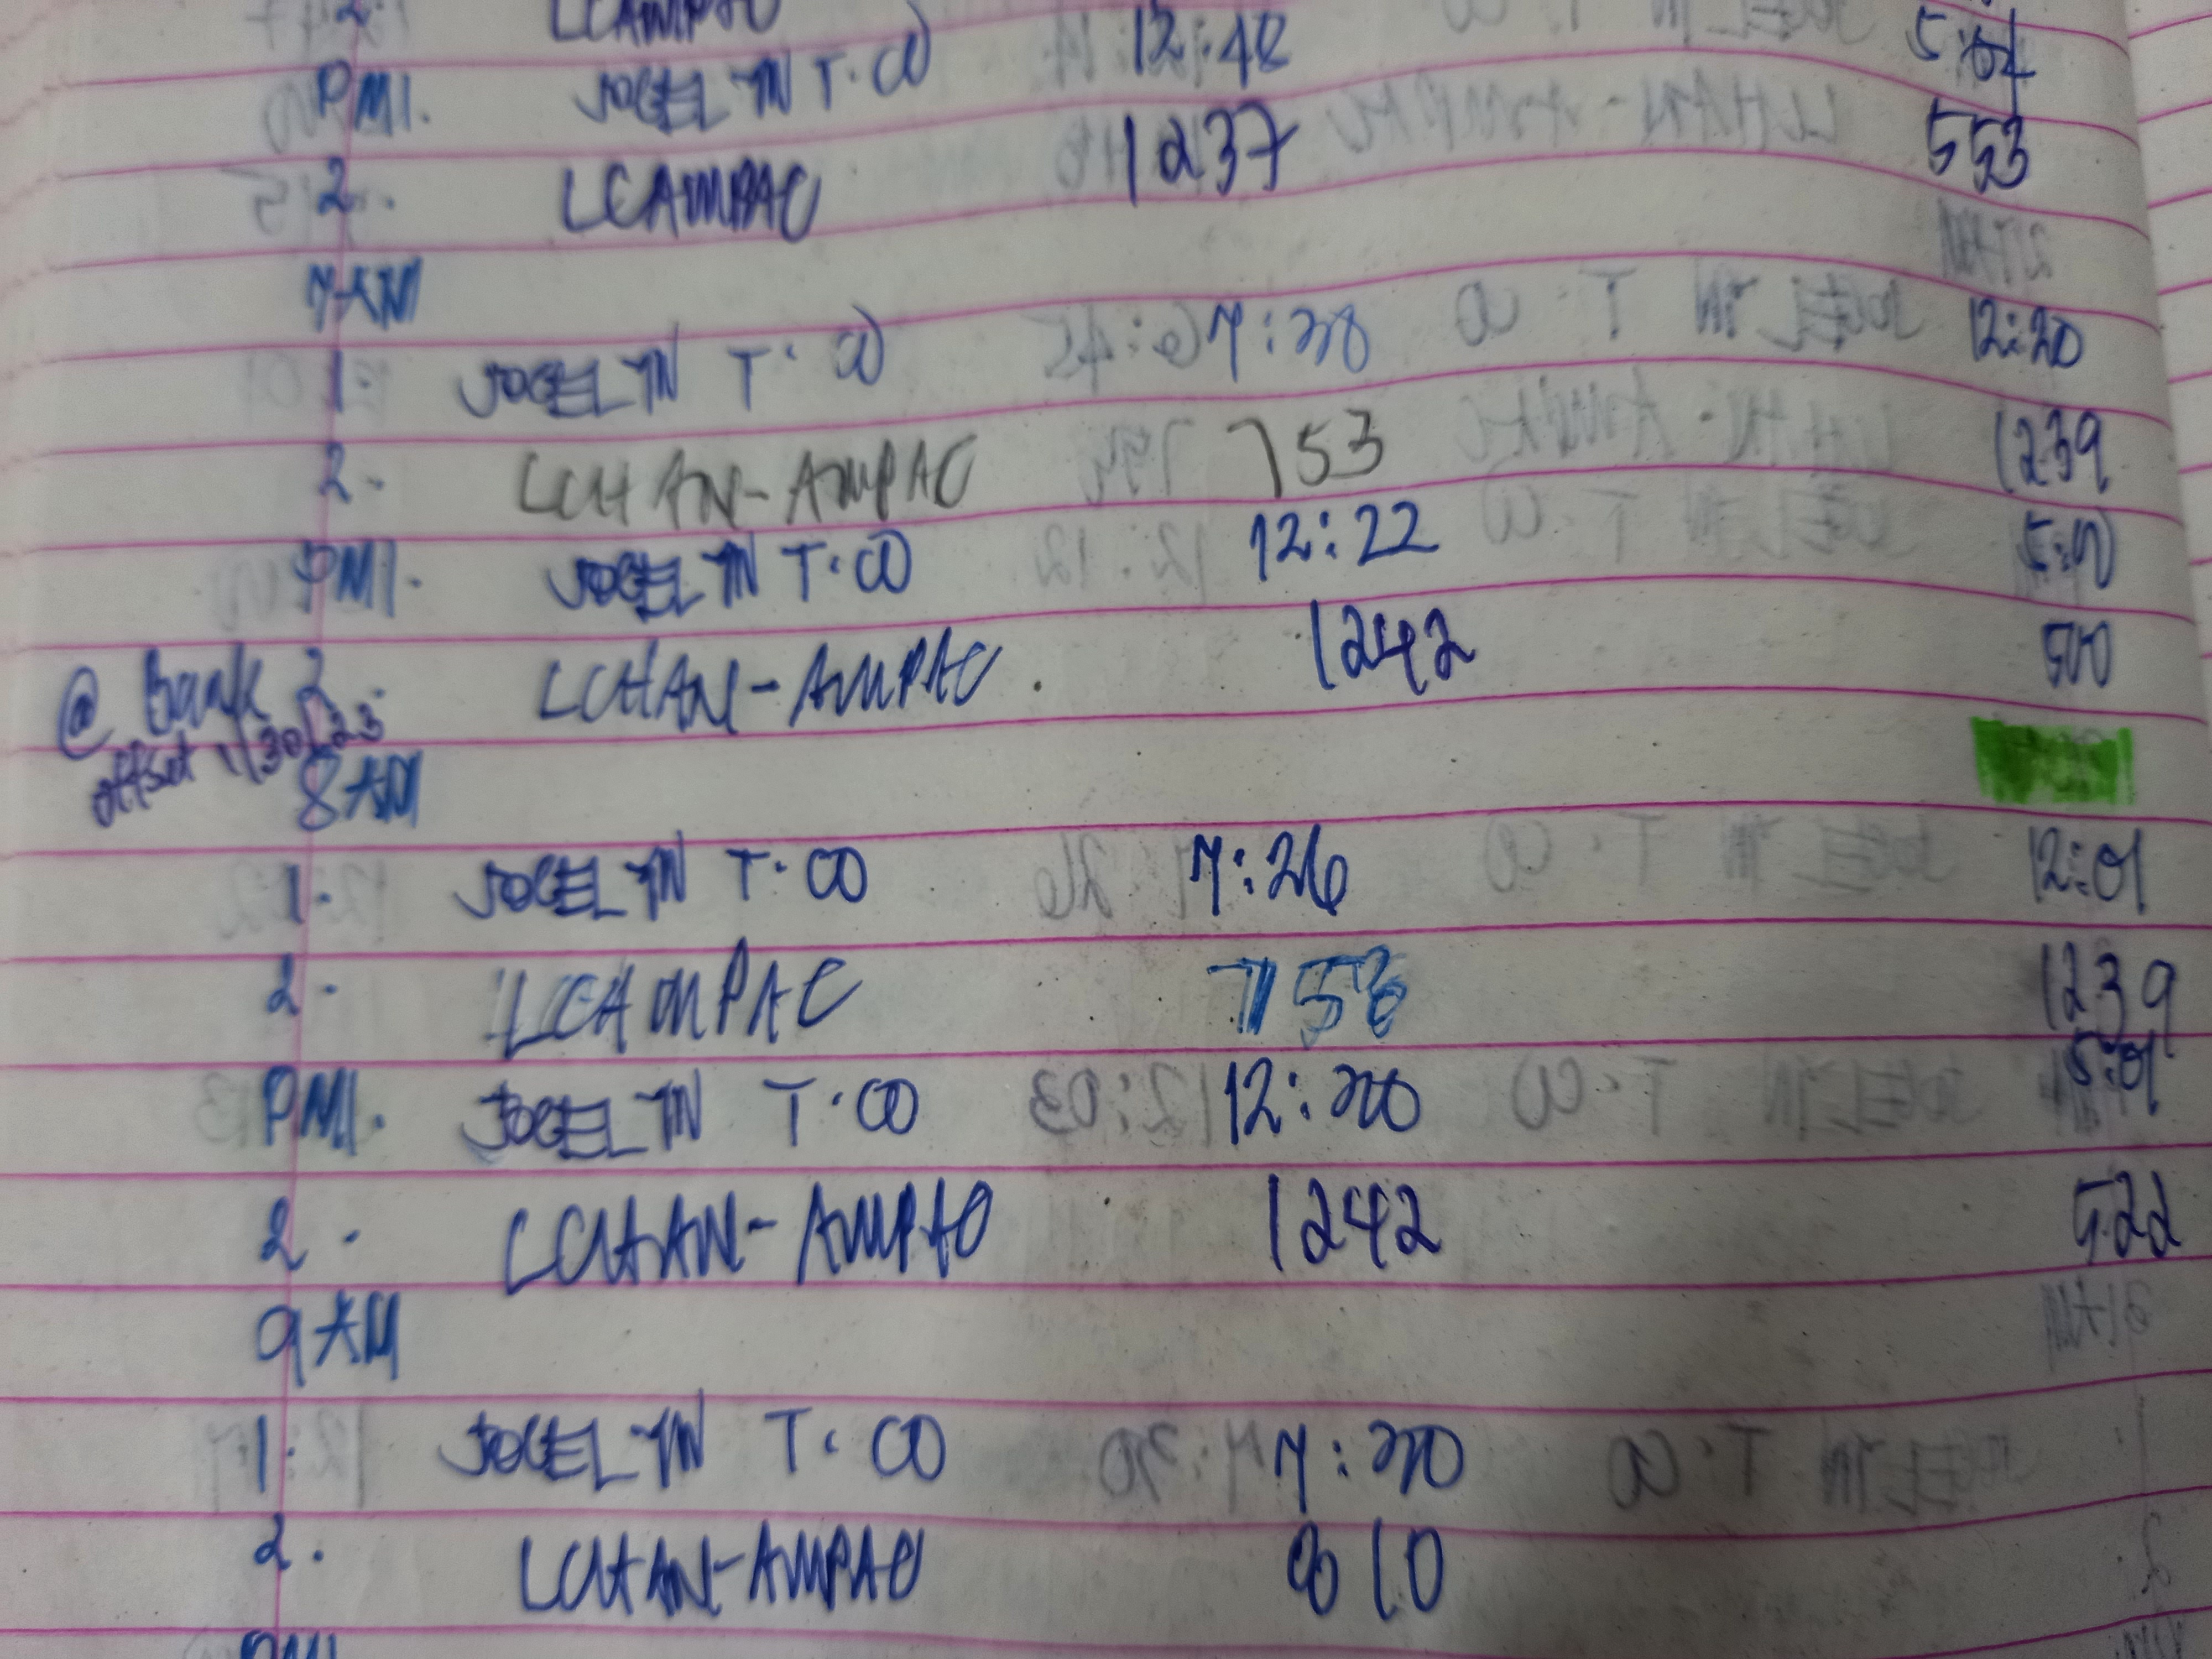 2. LCAMPAC
PM1. JOCELYN T. CO 12:48 5:04
2. LCAMPAC 1237 553
7AM
1. JOCELYN T. CO 7:28 12:20
2. LCHAN-AMPAC 753 1239
PM1. JOCELYN T. CO 12:22 5:00
@ Bank 2. LCHAN-AMPAC 1242 500
offset 1/30/23
8AM
1. JOCELYN T. CO 7:26 12:01
2. LCAMPAC 1239
PM1. JOCELYN T. CO 12:20 5:01
2. LCHAN-AMPAC 1242 522
9AM
1. JOCELYN T. CO 7:20
2. LCHAN-AMPAC 810
PM1